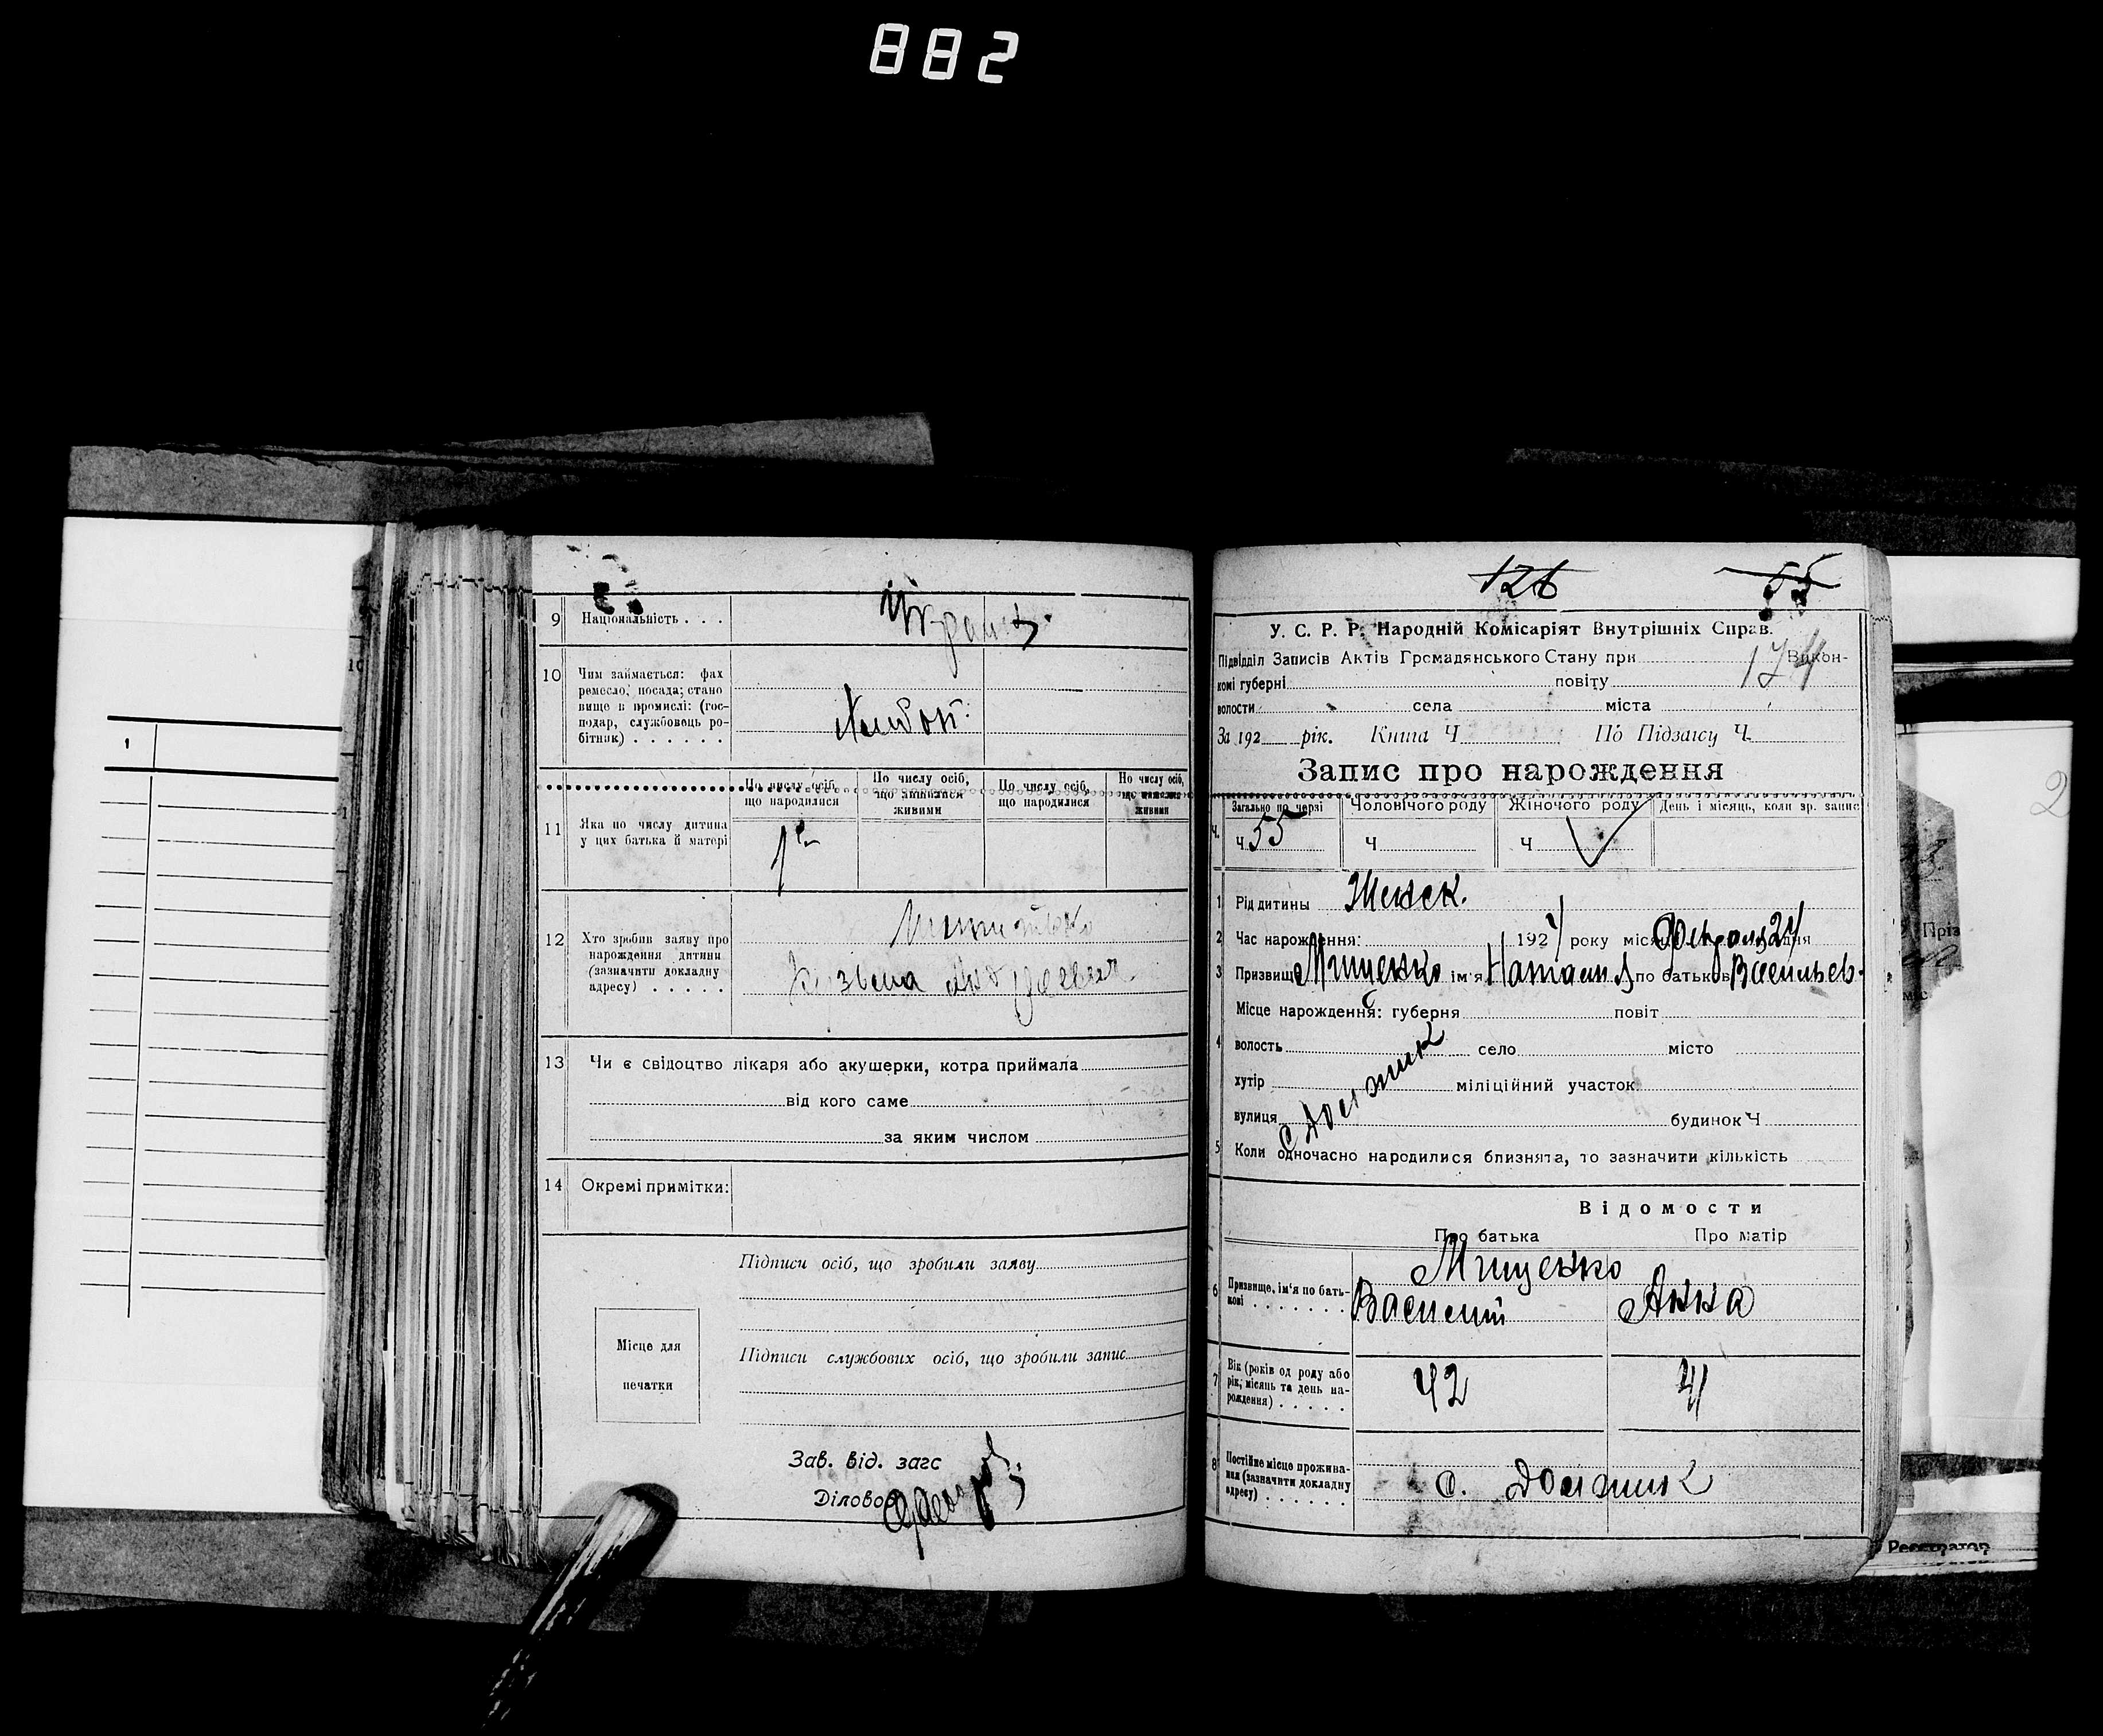 882
9 Національність . . .
10 Чим займається: фах
ремесло, посада; стано
вище в промислі: (гос-
подар, службовець ро-
бітник) . . . . . .
Хлібоп.
По числу осіб, що народилися
По числу осіб, що лишилися живими
По числу осіб, що народилися
По числу осіб, що лишилися живими
11 Яка по числу дитина
у цих батька й матері
12 Хто зробив заяву про
нарождення дитини
(зазначити докладну
адресу) . . . . .
13 Чи є свідоцтво лікаря або акушерки, котра приймала
від кого саме
за яким числом
14 Окремі примітки:
Підписи осіб, що зробили заяву
Місце для
печатки
Підписи службових осіб, що зробили запис
Зав. від. загс
Діловод
126 55
У. С. Р. Р. Народній Комісаріят Внутрішніх Справ.
Підвідділ Записів Актів Громадянського Стану при 174 Викон-
комі губерні повіту
волости села міста
За 192 рік. Книга Ч По Підзагсу Ч
Запис про нарождення
Загально по черзі Чоловічого роду Жіночого роду День і місяць, коли зр. запис
Ч. Ч 55 Ч Ч
1 Рід дитини Женск.
2 Час нарождення: 192 року місяця 24 дня
3 Призвище Мищенко ім'я Наталия по батькові Васильев.
Місце нарождення: губерня повіт
4 волость село місто
хутір міліційний участок
вулиця будинок Ч
с Должик
5 Коли одночасно народилися близнята, то зазначити кількість
Відомости
Про батька Про матір
6 Призвище, ім'я по бать-
кові . . . . . . .
Мищенко
Василий Анна
7 Вік (років од роду або
рік, місяць та день на-
рождення) . . . . .
42
8 Постійне місце прожива-
ння (зазначити докладну
адресу) . . . . . .
с. Должик
Пріз
міс
2
Реєстратор